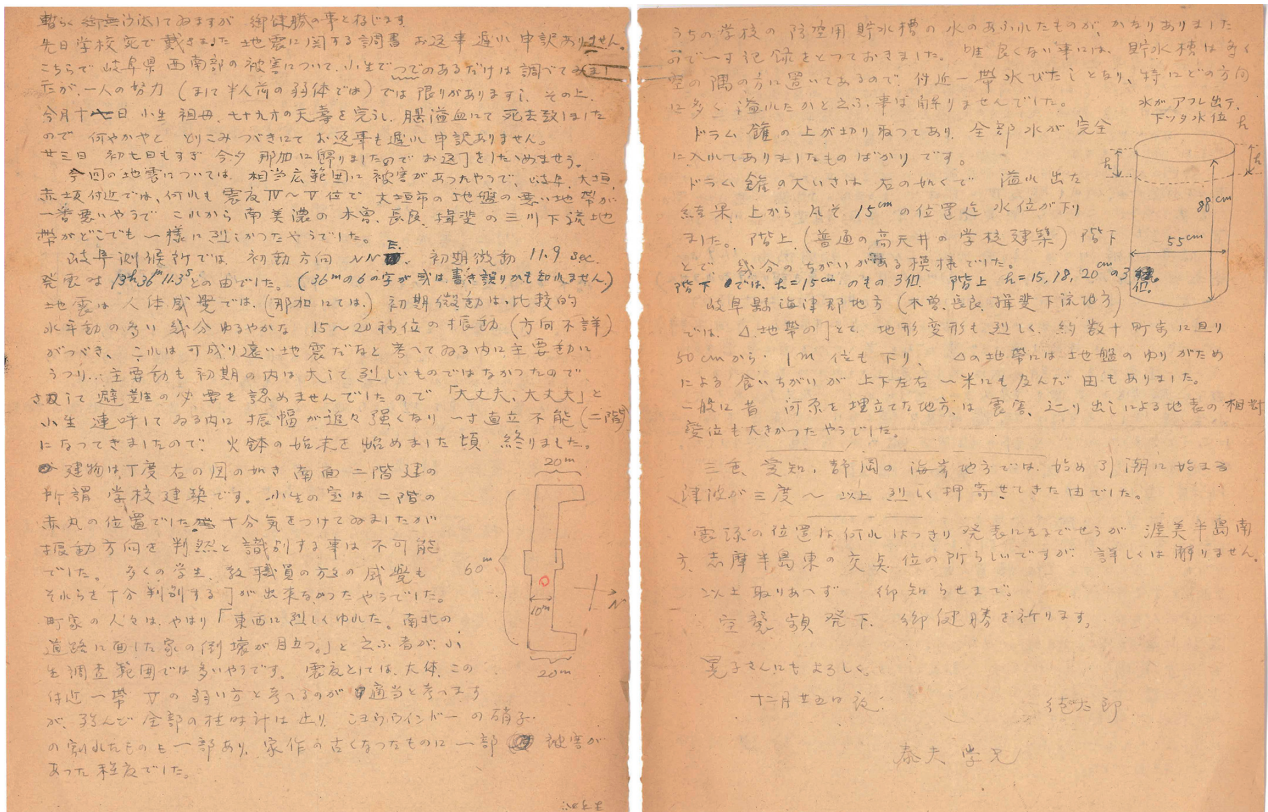 暫らく御無沙汰してゐますが 御健勝の事と存じます
先日学校宛で戴きました地震に関する調書 お返事遅れ申訳ありません。
こちらで岐阜県西南部の被害について、小生でつてのあるだけは調べてみまし
たが、一人の努力(まして半人前の弱体では)では限りがありますし、その上、
今月十七日 小生 祖母、七十九才の天寿を完うし、腸溢血にて死去致しました
ので 何やかやと とりこみつづきにて お返事も遅れ 申訳ありません。
廿三日 初七日もすぎ 今夕 那加に帰りましたのでお返事をしたゝめませう。
今回の地震については、相当広範囲に被害があつたやうで、岐阜、大垣、
赤坂付近では、何れも震度Ⅳ〜Ⅴ位で 大垣市の地盤の悪い地帯が
一番悪いやうで これから南美濃の木曽、長良、揖斐の三川下流地
帯がどこでも一様に烈しかつたやうでした。
岐阜測候所では、初動方向 NNE. 初期微動 11.9 sec.
発震は 13h36m11.3s との由でした。(36mの6の字が或は書き誤りかも知れません)
地震は人体感覚では、(那加にては)初期微動は比較的
水平動の多い 幾分ゆるやかな 15〜20秒位の振動(方向不詳)
がつづき、これは可成り遠い地震だなと考へてゐる内に主要動に
うつり、主要動も初期の内は大して烈しいものではなかつたので
さして避難の必要を認めませんでしたので「大丈夫、大丈夫」と
小生 連呼してゐる内に振幅が追々強くなり 一寸直立不能(二階)
になつてきましたので、火鉢の始末を始めました頃 終りました。
建物は丁度右の図の如き南面二階建の
所謂 学校建築です。小生の室は二階の
赤丸の位置でした 十分気をつけてゐましたが
振動方向を判然と識別する事は不可能
でした。多くの学生、教職員の方々の感覚も
それらを十分判別する事が出来なかつたやうでした。
町家の人々は、やはり「東西に烈しくゆれた。南北の
道路に面した家の倒壊が目立つ。」と云ふ者が、小
生調査範囲では多いやうです。震度としては、大体、この
付近一帯 Ⅴの弱い方と考へるのが適当と考へます
が、殆んど全部の柱時計は止り、ショウウインドーの硝子
の割れたものも一部あり、家作の古くなつたものに一部 被害が
あつた程度でした。
20m
60m
10m
N
20m
うちの学校の防空用貯水槽の水のあふれたものが、かなりありました
ので一寸記録をとつておきました。唯良くない事には、貯水槽は多く
室の隅の方に置いてあるので、付近一帯水びたしとなり、特にどの方向
に多く溢れたかと云ふ事は解りませんでした。
ドラム鑵の上が切り取つてあり、全部水が完全
に入れてありましたものばかりです。
ドラム鑵の大いさは右の如くで 溢れ出た
結果、上から凡そ15cmの位置迄 水位が下り
ました。階上(普通の高天井の学校建築)階下
とで、幾分のちがいが有る模様でした。
階下では、h=15cmのもの3個、階上 h=15,18,20cmの3個。
水がアフレ出デ、
下ッタ水位 h
h
h
88cm
55cm
岐阜縣海津郡地方(木曽、長良、揖斐下流地方)
では、△地帯の事とて、地形変形も烈しく、約数十町歩に亘り
50cmから 1m位も下り、△の地帯には土地盤のゆりがため
による食いちがいが上下左右一米にも及んだ田もありました。
一般に昔 河原を埋立てた地方は震害、辷り出しによる地表の相対
変位も大きかつたやうでした。
三重、愛知、静岡の海岸地方では、始め引潮に始まる
津波が三度〜以上烈しく押寄せてきた由でした。
震源の位置は何れはつきり発表になるでせうが 渥美半島南
方、志摩半島東の交点位の所らしいですが、詳しくは解りません。
以上取りあへず 御知らせまで。
空襲頻発下、御健勝を祈ります。
晃子さんにもよろしく。
十二月廿五日夜、
泰夫学兄